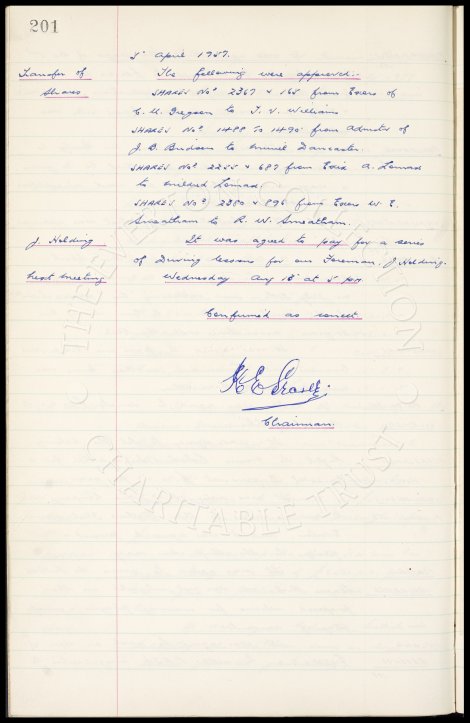 201
5 April 1957.
Transfer of The following were approved:-
Shares SHARES Nos 2367 & 165 from Exors of
C. H. Gregson to T. V. Williams
SHARES Nos 1488 to 1490 from Admstr of
J. B. Budson to Dancaster.
SHARES Nos 2255 & 687 from Exix A. Lomax
to Mildred Lomax
SHARES Nos 2380 & 896 from Exors W. E.
Smeatham to R. W. Smeatham.
J. Holding It was agreed to pay for a series
of Driving lessons for our Foreman J Holding.
Next meeting Wednesday Aug 15 at 5 pm
Confirmed as correct
Chairman.
THE EVERTON COLLECTION
CHARITABLE TRUST